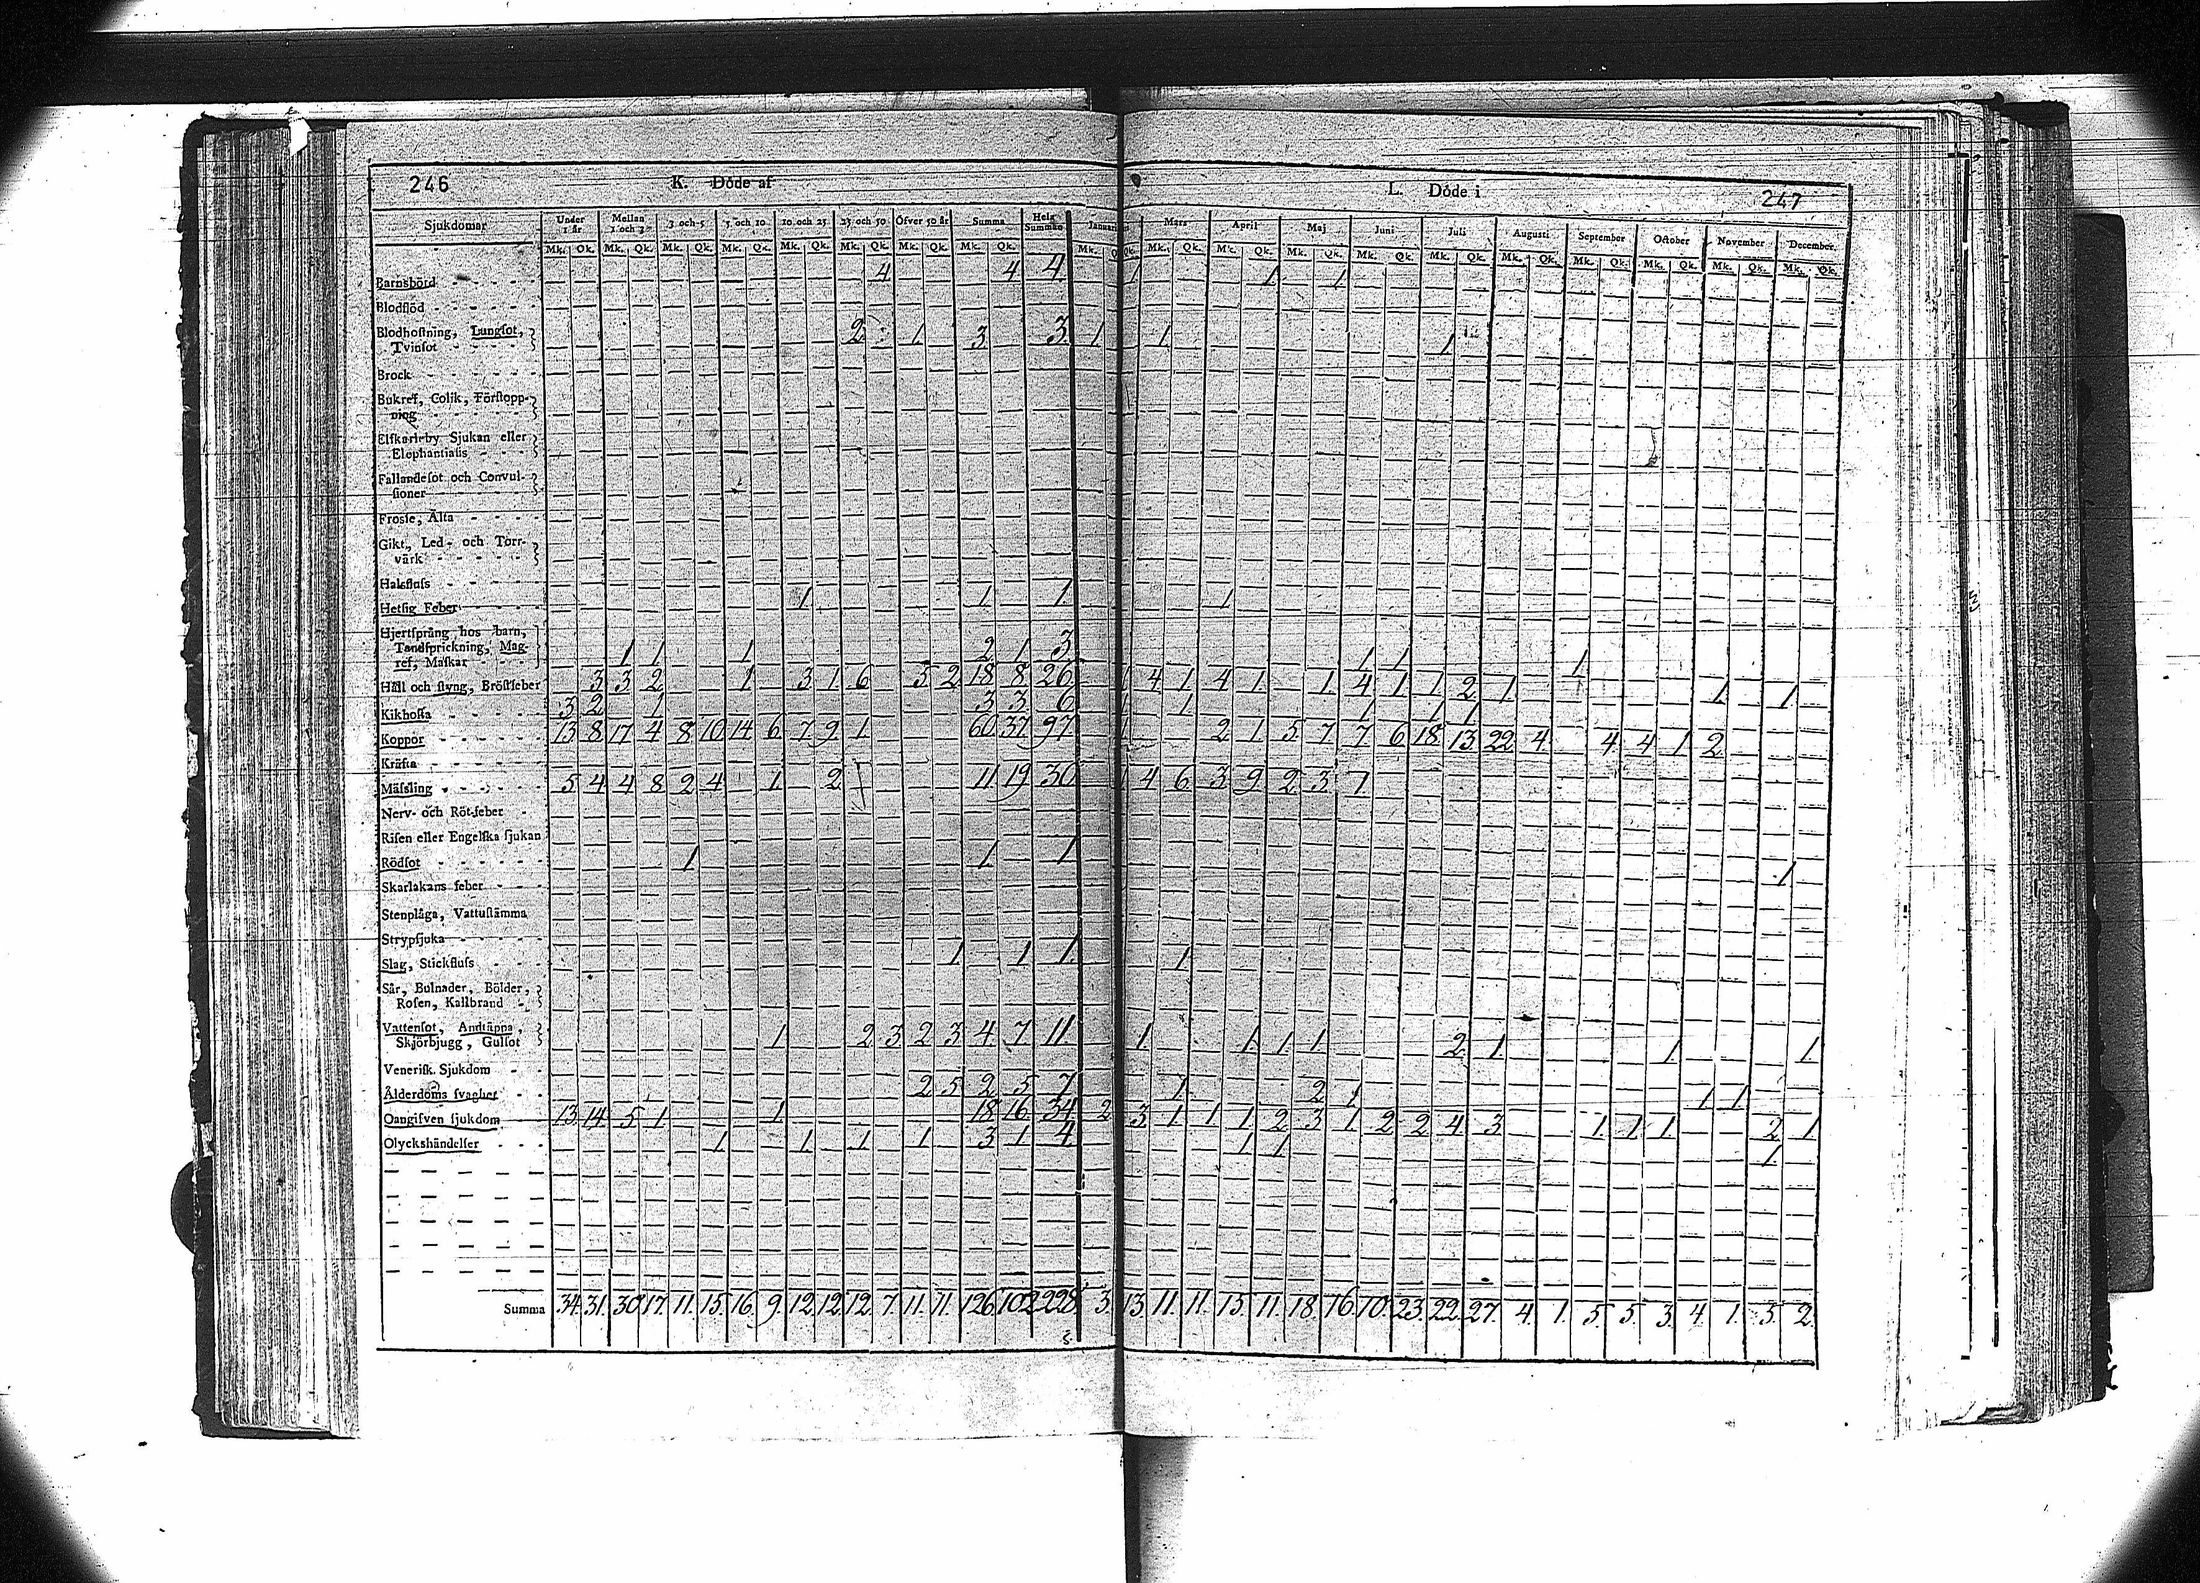 246 K. Döde af
Sjukdomar Under 1 år Mellan 1 och 3 3 och 5 5 och 10 10 och 25 25 och 50 Öfver 50 år Summa Hela Summan
Mk. Qk. Mk. Qk. Mk. Qk. Mk. Qk. Mk. Qk. Mk. Qk. Mk. Qk. Mk. Qk.
Barnsbörd 4 4 4
Blodflöd
Blodhoſtning, Lungſot,
Tvinſot 2 1 3 3
Brock
Bukref, Colik, Förſtopp-
ning
Elfkarleby Sjukan eller
Elephantiaſis
Fallandeſot och Convul-
ſioner
Frosſe, Älta
Gikt, Led- och Torr-
värk
Halsfluſs
Hetſig Feber 1 1 1
Hjertſprång hos barn,
Tandſprickning, Mag-
ref, Maſkar 1 1 1 2 1 3
Håll och ſtyng, Bröſtfeber 3 3 2 1 3 1 6 3 2 18 8 26
Kikhoſta 3 2 1 3 3 6
Koppor 13 8 17 4 8 10 14 6 7 9 1 60 37 97
Kräfta
Mäſsling 5 4 4 8 2 4 1 2 11 19 30
Nerv- och Röt-feber
Riſen eller Engelſka ſjukan
Rödſot 1 1 1
Skarlakans feber
Stenplåga, Vattuſtämma
Strypſjuka
Slag, Stickfluſs 1 1 1
Sår, Bulnader, Bölder,
Roſen, Kallbrand
Vattenſot, Andtäppa,
Skjörbjugg, Gulſot 1 2 3 2 3 4 7 11
Veneriſk Sjukdom
Ålderdoms ſvaghet 2 5 2 5 7
Oangifven ſjukdom 13 14 5 1 1 18 16 34
Olyckshändelſer 1 1 1 1 3 1 4
Summa 34 31 30 17 11 15 16 9 12 12 12 7 11 11 126 102 228
L. Döde i 247
Mars April Maj Juni Juli Auguſti September October November December
Mk. Qk. Mk. Qk. Mk. Qk. Mk. Qk. Mk. Qk. Mk. Qk. Mk. Qk. Mk. Qk. Mk. Qk. Mk. Qk.
1 1 1
1 1 1
1
1 1 1
4 1 4 1 1 4 1 1 2 1 1 1
1 1 1 1
2 1 5 7 7 6 18 13 22 4 4 4 1 2
4 6 3 9 2 3 1
1
1
1 1 1 1 2 1 1 1
1 2 1 1 1
2 3 1 1 1 2 3 1 2 2 4 3 1 1 1 2 1
1 1 1
3 13 11 11 15 11 18 16 10 23 22 27 4 1 5 5 3 4 1 3 2